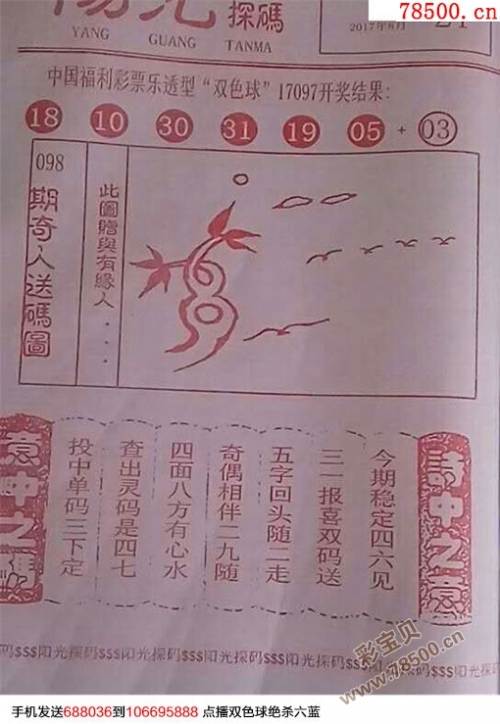 78500.cn
陽光探碼
YANG GUANG TANMA
2017年8月
21
中国福利彩票乐透型“双色球”17097开奖结果:
18 10 30 31 19 05 + 03
098
期奇人送碼圖
此圖贈與有緣人...
詩中之意
今期稳定四六见
三一报喜双码送
五字回头随二走
奇偶相伴二九随
四面八方有心水
查出灵码是四七
投中单码三下定
意中之碼
码$$$阳光探码$$$阳光探码$$$阳光探码$$$阳光探码$$$
彩宝贝
78500.cn
手机发送688036到106695888 点播双色球绝杀六蓝